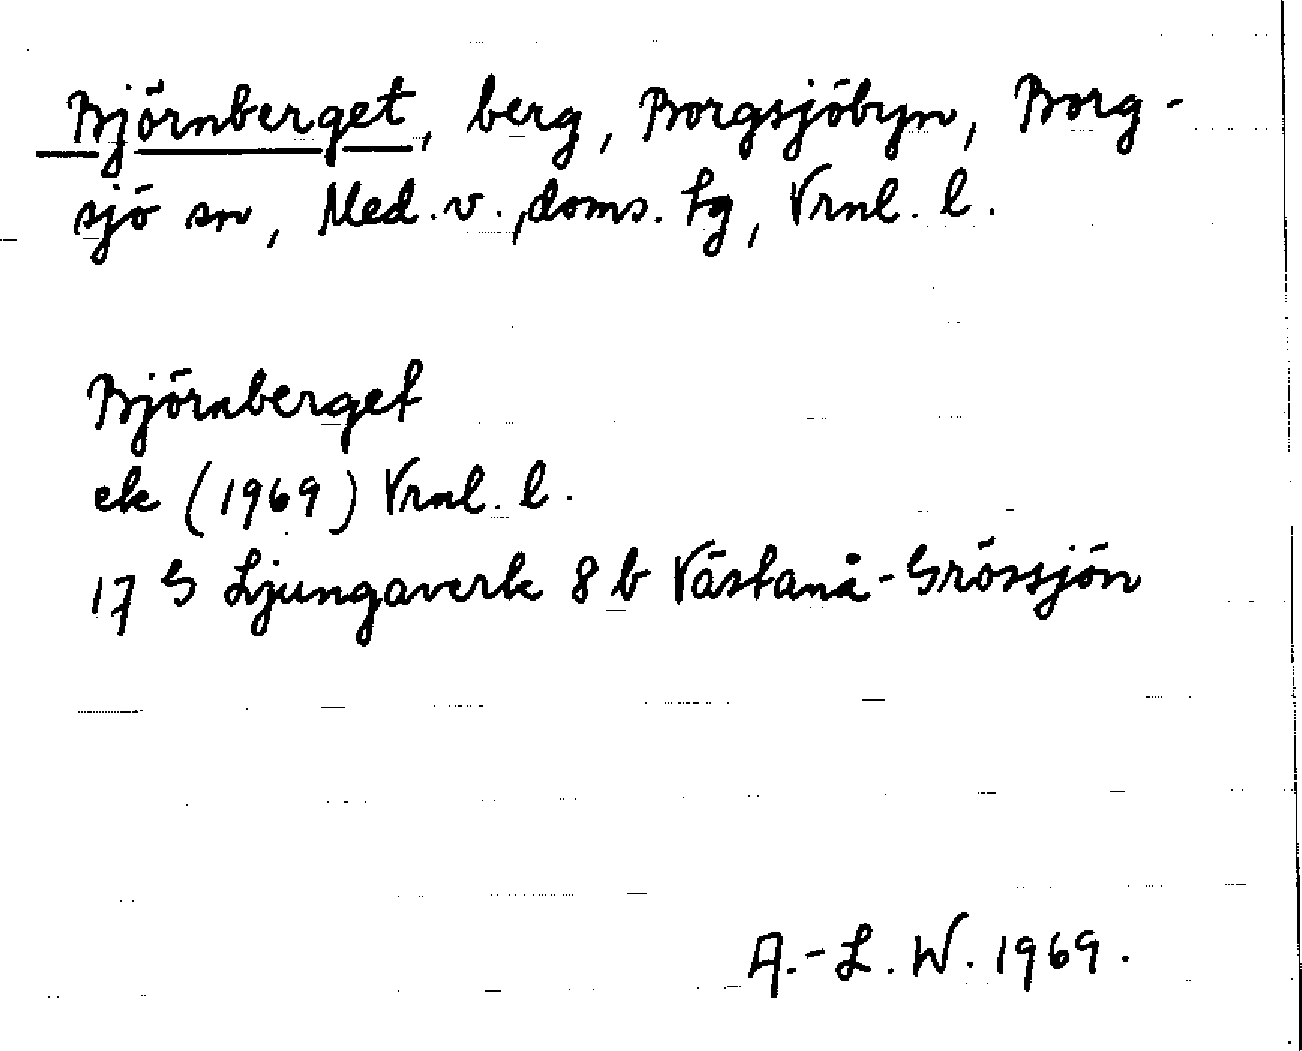 Björnberget, berg, Borgsjöbyn, Borg-
sjö sn, Med. v., doms. tg, Vrnl. l.
Björnberget
ek (1969) Vrnl. l.
17 G Ljungaverk 8 b Västanå-Grössjön
A.-L. W. 1969.